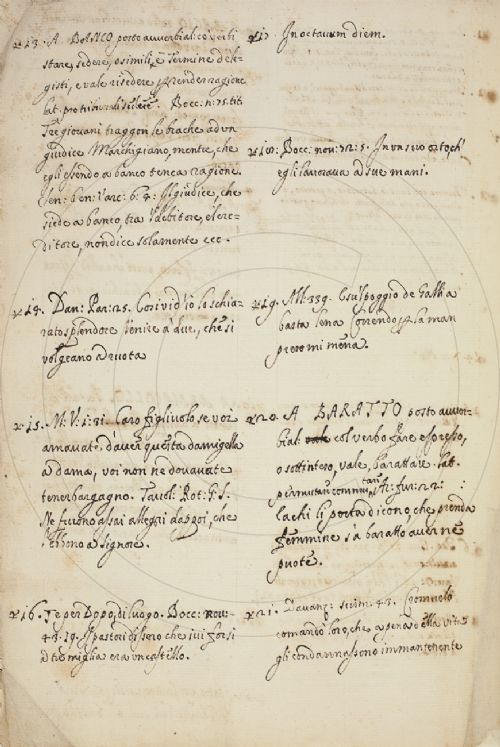 13. A BANCO posto avverbialm. co' verbi
stare, sedere, o simili, è Termine de le-
gisti, e vale risedere per render ragione
lat. pro tribunali sedere. Bocc: n: 75. tit
Tre giovani traggon le brache ad un
giudice Marchigiano, mentre, che
egli essendo a banco tenea ragione.
Sen: ben: Varc: 6: 4: Il giudice, che
siede a banco, tra 'l debitore, e 'l cre-
ditore, non dice solamente ecc.
14. Dan: Par: 25. Così vid' io lo schia-
rato splendore venire a' due, che si
volgeano a ruota
15. M: V: 1: 31. Caro figliuolo, se voi
amavate d'aver questa damigella
a dama, voi non ne dovavate
tener bargagno. Tavol: Rot: G. S.
Ne furono assai allegri dappoi, che
l'ebbono a signore.
16. Te per Dopo, di luogo. Bocc: nov:
43. 19. A pastori dissero che ivi forse
a tre miglia era un castello.
17 In octavum diem.
18: Bocc: nov: 72: 5. In un suo orto, ch'
egli lavorava a sue mani.
19. All: 339. E sul poggio de Gallia
basta lena correndo per la man
preso mi mena.
20. A BARATTO posto avver-
bial: col verbo fare espresso,
o sottinteso, vale, barattare. lat.
permutare commutari. Ar: fur: 22:
la chi li porta dicono, che prenda
femmine s'a baratto aver ne
puote.
21. Davanz: scism: 43. Cromuelo
comandò loro, che a pena della vita
gli condannassono immantenente